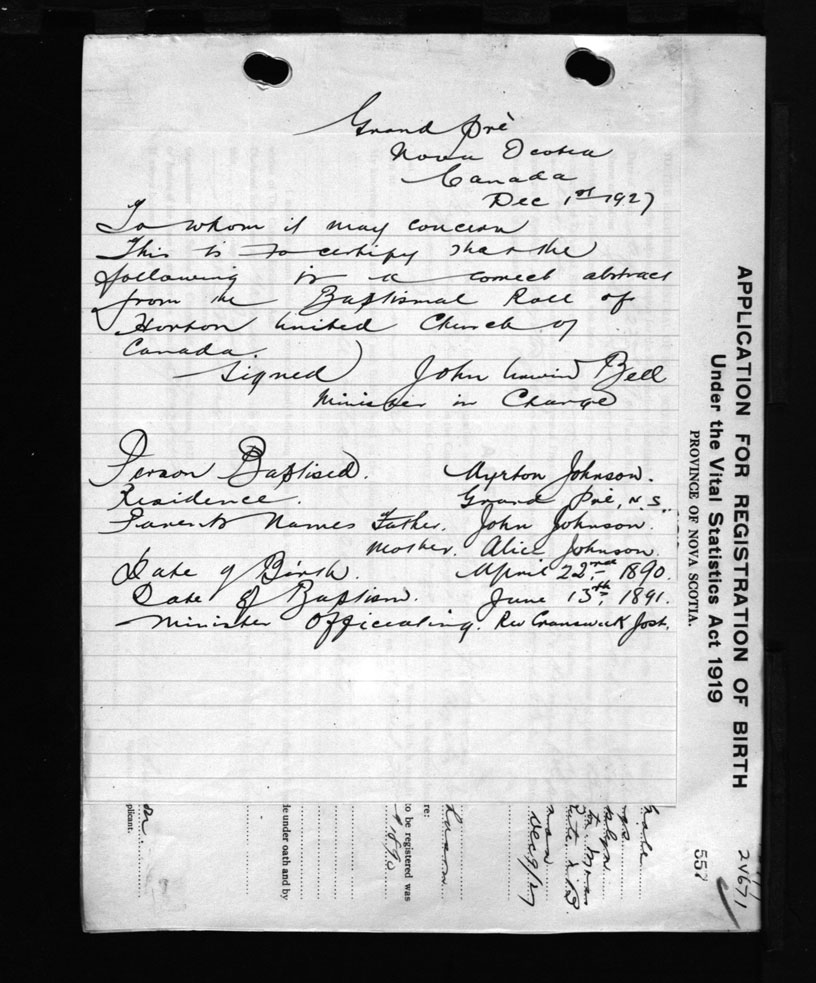 Grand Pré
Nova Scotia
Canada
Dec 1st 1927
To whom it may concern
This is to certify that the
following is a correct abstract
from the Baptismal Roll of
Horton United Church of
Canada.
Signed) John Unwin Bell
Minister in Charge
Person Baptised. Myrton Johnson.
Residence. Grand Pré, N.S.
Parents Names Father. John Johnson.
Mother. Alice Johnson.
Date of Birth. April 22nd 1890.
Date of Baptism. June 13th 1891.
Minister Officiating. Rev Cranswick Jost.
APPLICATION FOR REGISTRATION OF BIRTH
Under the Vital Statistics Act 1919
PROVINCE OF NOVA SCOTIA.
557
Dec 9/27
re:
to be registered was
le under oath and by
plicant.